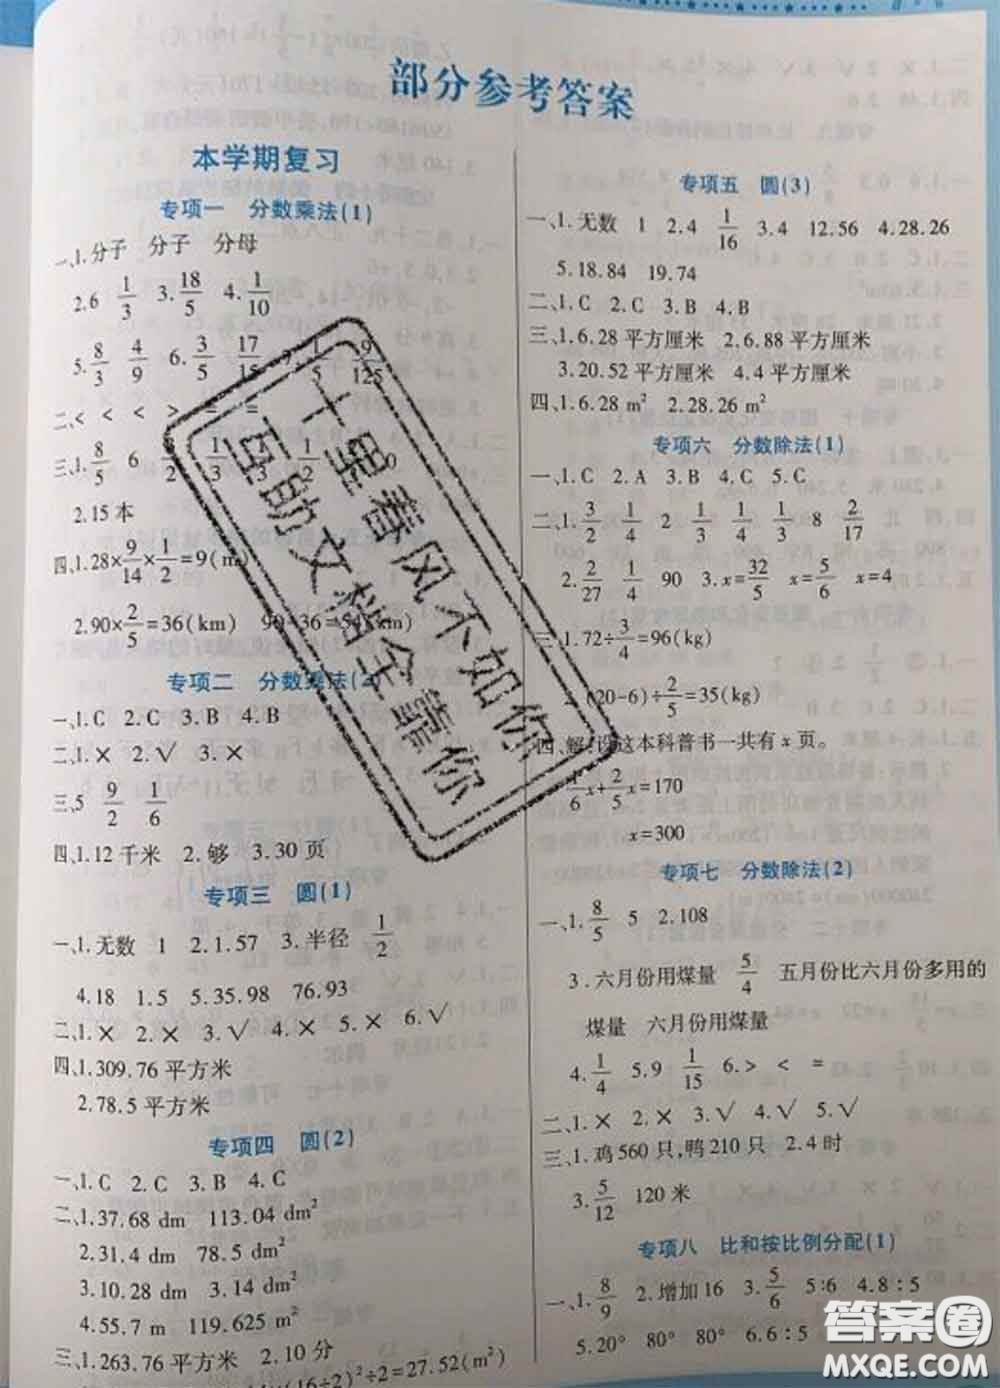 部分参考答案
本学期复习
专项一 分数乘法(1)
一、1.分子 分子 分母
2.6 1/3 3.18/5 4.1/10
5.8/3 4/9 6.3/5 17/15 7.1/5 9/125
二、< < < > = =
三、1.8/5 6
2.15 本
四、1.28×9/14×1/2=9(m)
2.90×2/5=36(km) 90-36=54(km)
专项二 分数乘法(2)
一、1.C 2.C 3.B 4.B
二、1.× 2.√ 3.×
三、5 9/2 1/6
四、1.12千米 2.够 3.30页
专项三 圆(1)
一、1.无数 1 2.1.57 3.半径 1/2
4.18 1.5 5.35.98 76.93
二、1.× 2.× 3.√ 4.× 5.× 6.√
四、1.309.76 平方厘米
2.78.5 平方厘米
专项四 圆(2)
一、1.C 2.C 3.B 4.C
二、1.37.68 dm 113.04 dm²
2.31.4 dm 78.5 dm²
3.10.28 dm 3.14 dm²
4.55.7 m 119.625 m²
三、1.263.76 平方米 2.10 分
(16÷2)²÷2=27.52(m²)
专项五 圆(3)
一、1.无数 1 2.4 1/16 3.4 12.56 4.28.26
5.18.84 19.74
二、1.C 2.C 3.B 4.B
三、1.6.28 平方厘米 2.6.88 平方厘米
3.20.52 平方厘米 4.4 平方厘米
四、1.6.28 m² 2.28.26 m²
专项六 分数除法(1)
一、1.C 2.A 3.B 4.C 5.C
二、1.3/2 1/4 2 1/3 1/4 1/3 8 2/17
2.2/27 1/4 90 3.x=32/5 x=5/6 x=4
三、1.72÷3/4=96(kg)
2.(20-6)÷2/5=35(kg)
四、解:设这本科普书一共有 x 页。
1/6x+2/5x=170
x=300
专项七 分数除法(2)
一、1.8/5 5 2.108
3.六月份用煤量 5/4 五月份比六月份多用的
煤量 六月份用煤量
4.1/4 5.9 1/15 6.> < =
二、1.× 2.× 3.√ 4.√ 5.√
三、1.鸡 560 只,鸭 210 只 2.4 时
3.5/12 120 米
专项八 比和按比例分配(1)
一、1.8/9 2.增加 16 3.5/6 5:6 4.8:5
5.20° 80° 80° 6.6:5
十里春风不如你
互助文档全靠你
答案圈
MXQE.COM